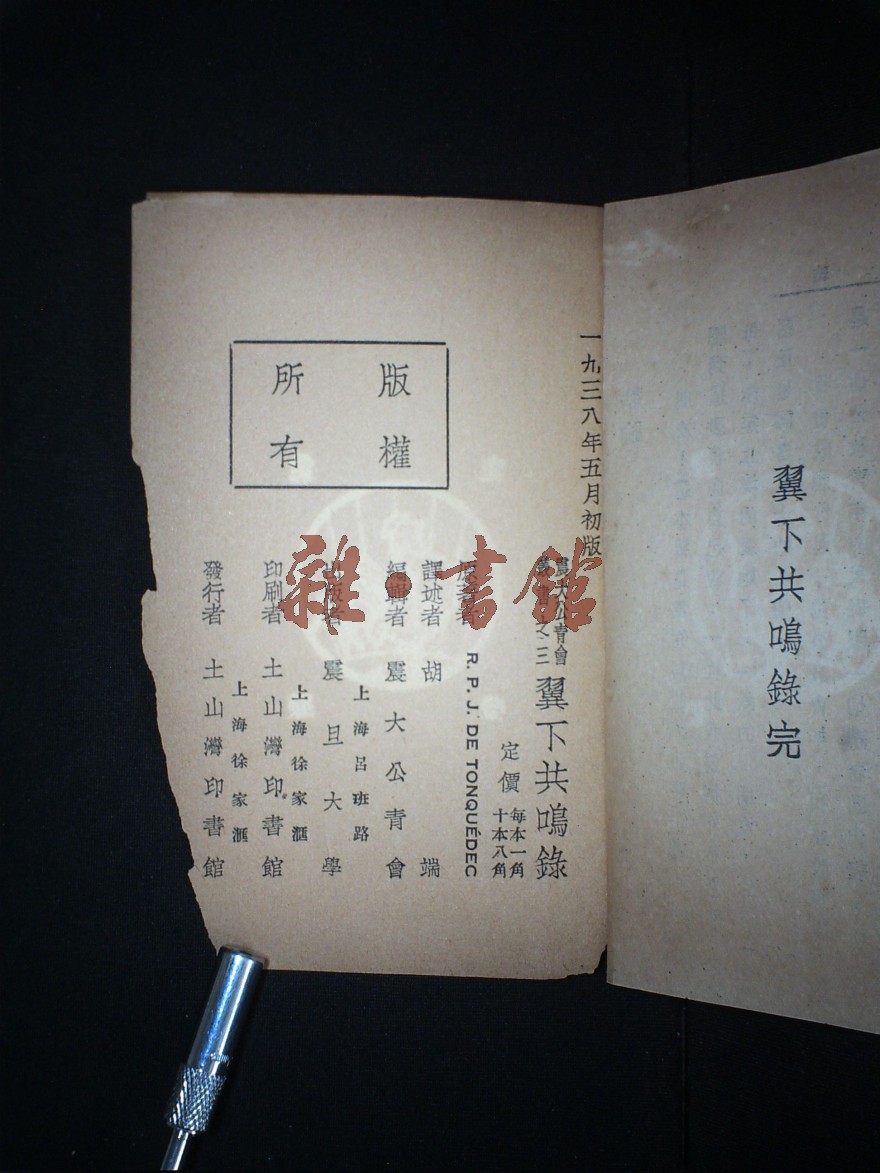 翼下共鳴錄完
一九三八年五月初版
震大公青會
叢書之三
翼下共鳴錄
定價
每本一角
十本八角
原著者 R. P. J. DE TONQUÉDEC
譯述者 胡端
編輯者 震大公青會
上海呂班路
出版者 震旦大學
上海徐家滙
印刷者 土山灣印書館
上海徐家滙
發行者 土山灣印書館
版權
所有
雜·書館